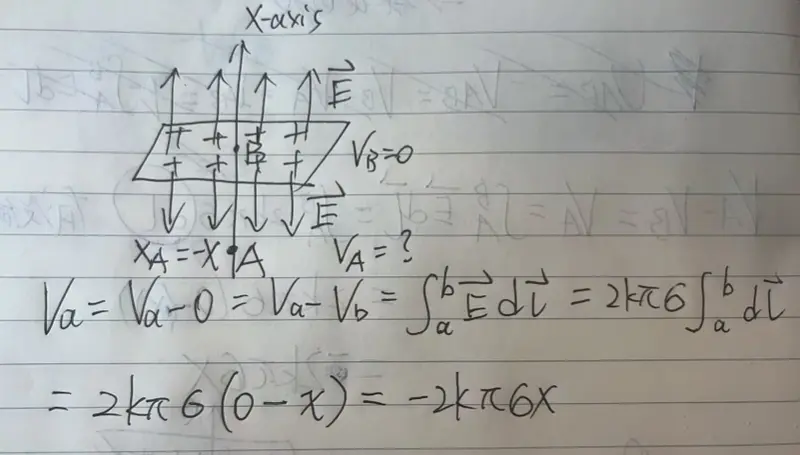 X-axis
E⃗
++ + + ++
+ + B + +
V_B=0
E⃗
x_A=-x A V_A=?
V_a = V_a-0 = V_a-V_b = ∫_a^b E⃗ dl⃗ = 2kπ6 ∫_a^b dl⃗
= 2kπ6(0-x) = -2kπ6x